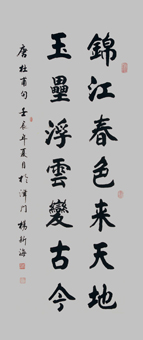 錦江春色来天地
玉壘浮雲變古今
唐杜甫句壬辰年夏月於津门楊新海